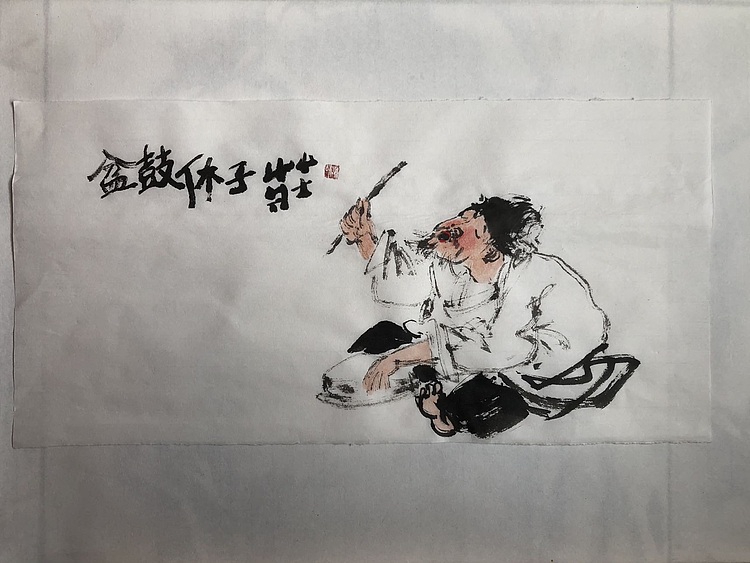 莊子休鼓盆